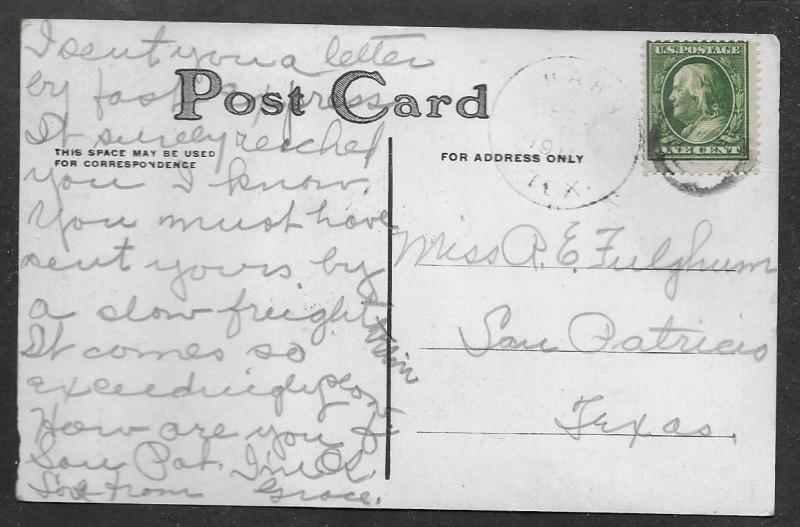 I sent you a letter
by fast Express
It surely reached
you I know.
You must have
sent yours by
a slow freight train
It comes so
exceedingly slow.
How are you &
San Pat. I'm O.K.
from Grace.
Post Card
THIS SPACE MAY BE USED
FOR CORRESPONDENCE
FOR ADDRESS ONLY
TEX
U.S. POSTAGE
ONE CENT
Miss R. E. Fulghum
San Patricio
Texas.